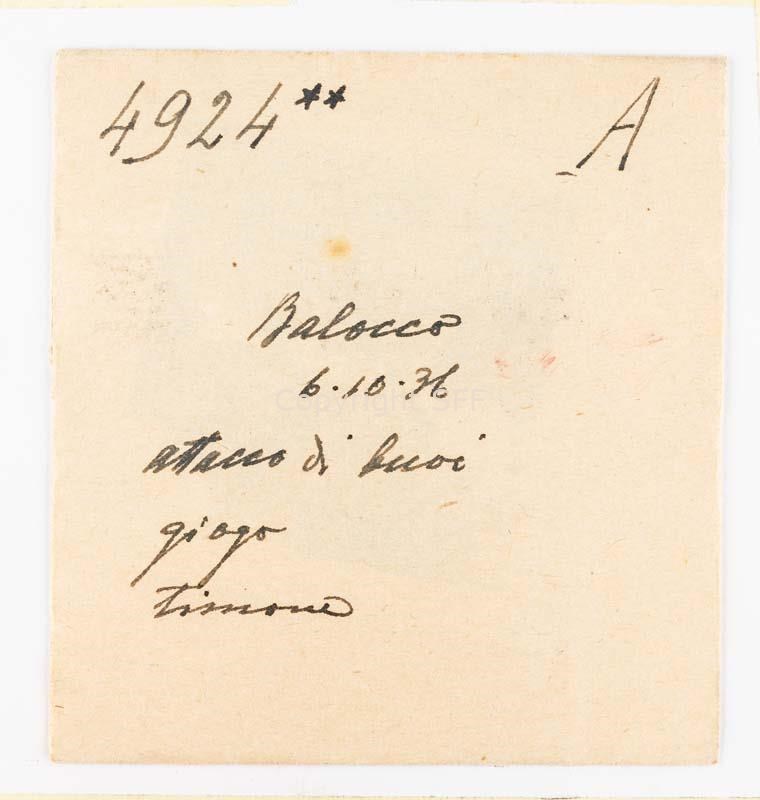 4924** A
Balocco
6.10.36
Copyright SFF
attacco di buoi
giogo
timone